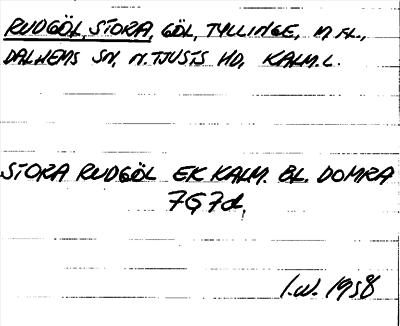 RUDGÖL, STORA, GÖL, TYLLINGE, M FL.,
DALHEMS SN, N. TJUSTS HD, KALM. L.
STORA RUDGÖL EK KALM. BL. DOMRA
7G7d,
I.W. 1958